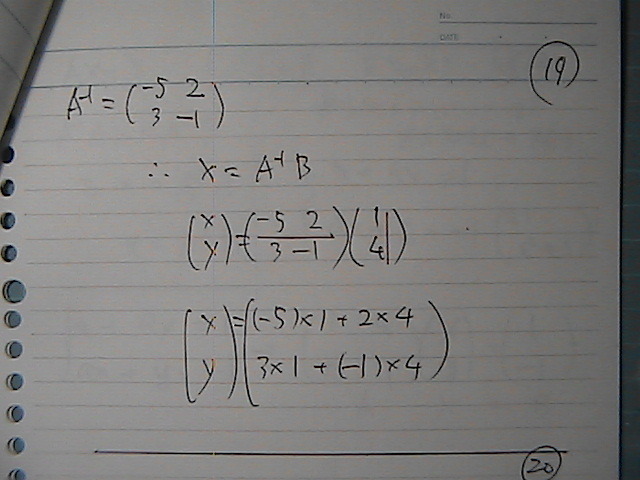 No.
DATE
19
A⁻¹ = (-5 2
3 -1)
∴ X = A⁻¹ B
(x
y) = (-5 2
3 -1) (1
4)
(x
y) = ((-5)×1 + 2×4
3×1 + (-1)×4)
20